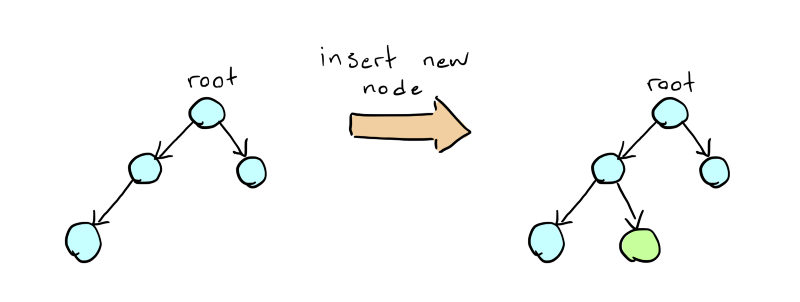 root
insert new
node
root